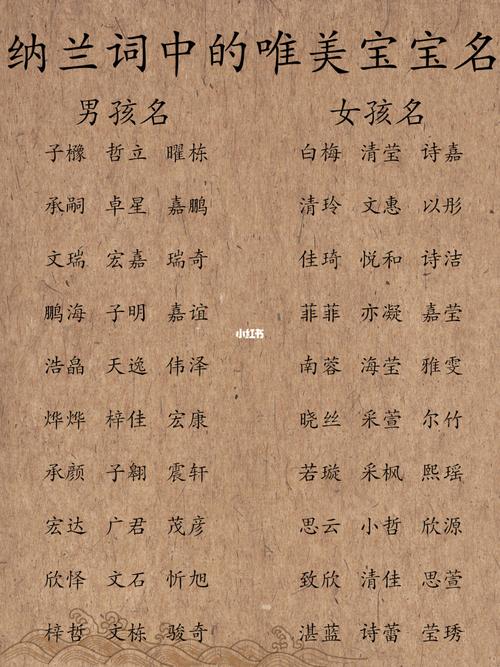 纳兰词中的唯美宝宝名
男孩名 女孩名
子橼 哲立 曜栋 白梅 清莹 诗嘉
承嗣 卓星 嘉鹏 清玲 文惠 以彤
文瑞 宏嘉 瑞奇 佳琦 悦和 诗洁
鹏海 子明 嘉谊 菲菲 亦凝 嘉莹
小红书
浩皛 天逸 伟泽 南蓉 海莹 雅雯
烨烨 梓佳 宏康 晓丝 采萱 尔竹
承颜 子翱 震轩 若璇 采枫 熙瑶
宏达 广君 茂彦 思云 小哲 欣源
欣怿 文石 忻旭 致欣 清佳 思萱
梓哲 文栋 骏奇 湛蓝 诗蕾 莹琇